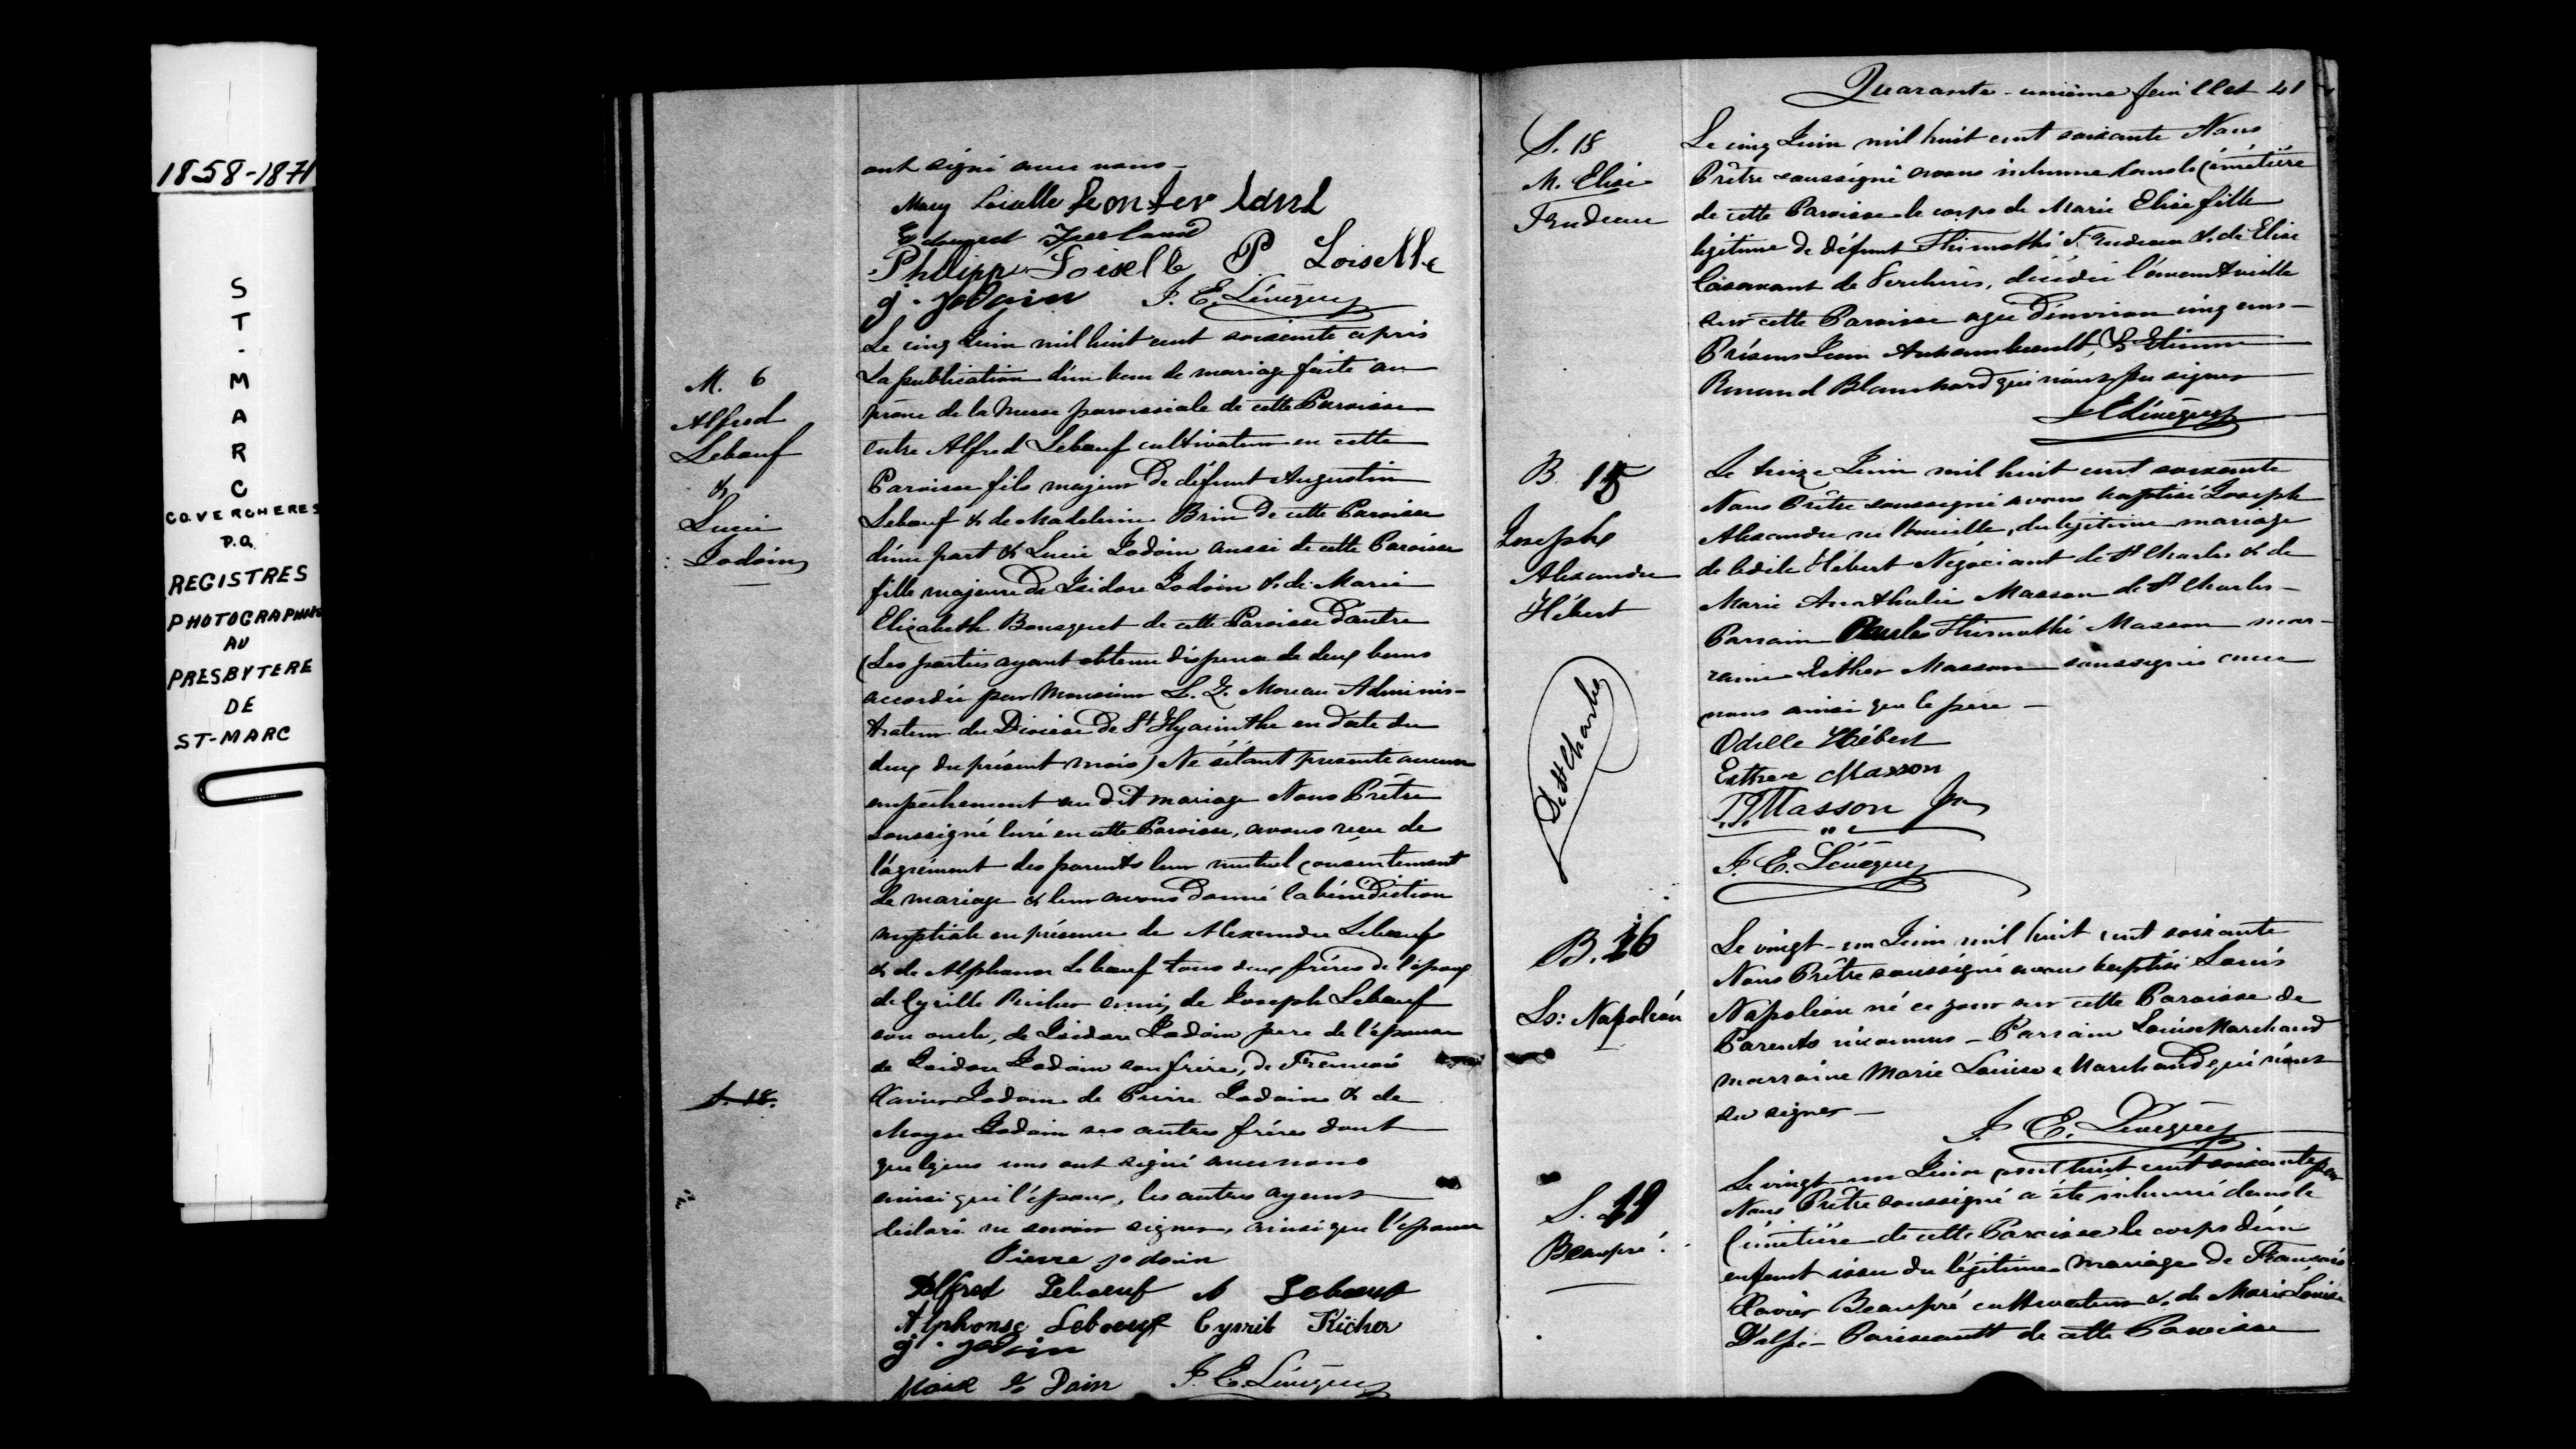 1858-1871
S
T
-
M
A
R
C
CO. VERCHERES
P.Q.
REGISTRES
PHOTOGRAPHIES
AU
PRESBYTERE
DE
ST-MARC
ont signé avec nous -
Mary Loiselle
Edouard
Philippe Loiselle P Loiselle
J. E. Lévèque
M. 6
Alfred
Leboeuf
&
Lucie
Jodoin
Le cinq Juin mil huit cent soixante après
La publication d'un ban de mariage faite au
prône de la Messe paroissiale de cette Paroisse
entre Alfred Leboeuf cultivateur en cette
Paroisse fils majeur de défunt Augustin
Leboeuf & de Madeleine Brin de cette Paroisse
d'une part & Lucie Jodoin aussi de cette Paroisse
fille majeure de Isidore Jodoin & de Marie
Elizabeth Bousquet de cette Paroisse d'autre
(Les parties ayant obtenu dispense de deux bans
accordée par Monsieur L. Z. Moreau Adminis-
trateur du Diocèse de St Hyacinthe en date du
deux du présent mois) Ne s'étant presenté aucun
empêchement au dit mariage Nous Prêtre
soussigné Curé en cette Paroisse, avons reçu de
l'agrément des parents leur mutuel consentement
de mariage & leur avons donné la bénédiction
nuptiale en présence de Alexandre Leboeuf
& de Alphonse Leboeuf tous deux frères de l'époux
de Cyrille Richer ami, de Joseph Leboeuf
son oncle, de Isidore Jodoin pere de l'épouse
de Isidore Jodoin son frère, de François
S. 18.
Xavier Jodoin de Pierre Jodoin & de
Moyse Jodoin ses autres frères dont
quelques uns ont signé avec nous
ainsi que l'époux, les autres ayant
déclaré ne savoir signer, ainsi que l'épouse
Pierre jodoin
Alfred Leboeuf A Leboeuf
Alphonse Leboeuf Cyrile Richer
J. E. Lévèque
Quarante-unième feuillet 41
S. 18
M. Elise
Trudeau
Le cinq Juin mil huit cent soixante Nous
Prêtre soussigné avons inhumé dans le Cimétière
de cette Paroisse le corps de Marie Elise fille
legitime de défunt Thimothé Trudeau & de Elise
Casavant de Verchères, décédée l'avant veille
sur cette Paroisse agée d'environ cinq ans -
Présens Jean Archambault, & Etienne
Renaud Blanchard qui n'ont pu signer
J E Lévèque
B. 15
Joseph
Alexandre
Hébert
De St Charles
Le treize Juin mil huit cent soixante
Nous Prêtre soussigné avons baptisé Joseph
Alexandre né la veille, du légitime mariage
de Odile Hébert Négociant de St Charles & de
Marie Anathalie Masson de St Charles -
Parrain Charles Thimothé Masson mar-
raine Esther Masson soussignés avec
nous ainsi que le père -
Odille Hébert
Esther Masson
Masson
J. E. Lévèque
B. 16
Ls: Napoléon
Le vingt-un Juin mil huit cent soixante
Nous Prêtre soussigné avons baptisé Louis
Napoléon né ce jour sur cette Paroisse de
Parents inconnus - Parrain Louis Marchand
marraine Marie Louise Marchand qui n'ont
su signer -
J. E. Lévèque
S. 19
Beaupré.
Le vingt-un Juin mil huit cent soixante par
Nous Prêtre soussigné a été inhumé dans le
Cimétière de cette Paroisse le corps d'un
enfant issu du légitime mariage de François
Xavier Beaupré cultivateur & de Marie Louise
Dalpé-Pariseault de cette Paroisse